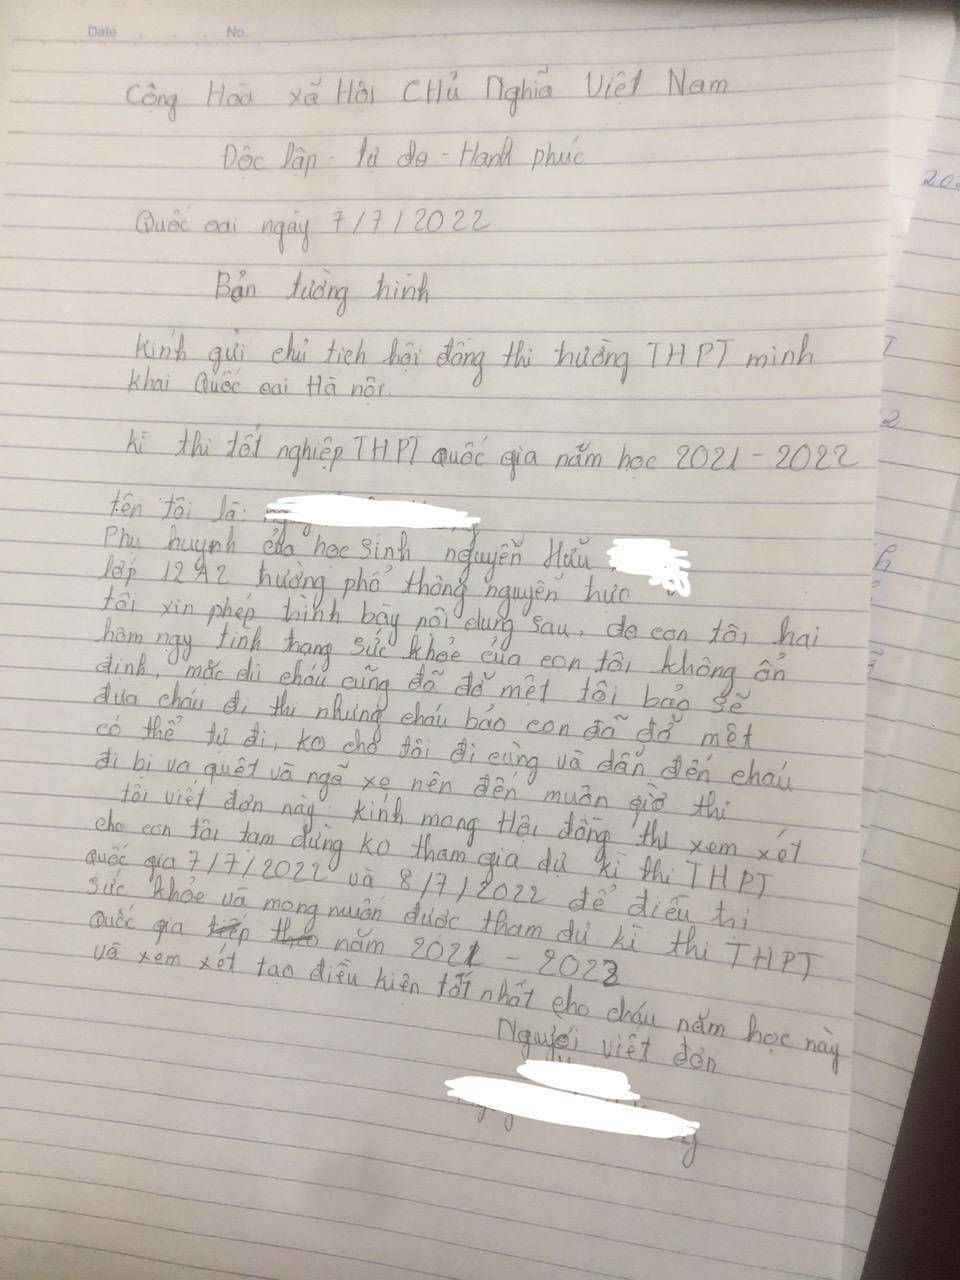 Date No.
Cộng Hòa xã Hội CHủ Nghĩa Việt Nam
Độc lập - tự do - Hạnh phúc
Quốc oai ngày 7/7/2022
Bản tường trình
Kính gửi chủ tịch hội đồng thi trường THPT minh
khai Quốc oai Hà nội.
kì thi tốt nghiệp THPT quốc gia năm học 2021 - 2022
tên tôi là:
Phụ huynh của học sinh nguyễn Hữu
lớp 12A2 trường phổ thông nguyễn trực
tôi xin phép trình bày nội dung sau, do con tôi hai
hôm nay tình trạng sức khỏe của con tôi không ổn
định, mặc dù cháu cũng đã đỡ mệt tôi bảo sẽ
đưa cháu đi thi nhưng cháu bảo con đã đỡ mệt
có thể tự đi, ko cho tôi đi cùng và dẫn đến cháu
đi bị va quệt và ngã xe nên đến muộn giờ thi
tôi viết đơn này kính mong Hội đồng thi xem xét
cho con tôi tạm dừng ko tham gia dự kì thi THPT
quốc gia 7/7/2022 và 8/7/2022 để điều trị
sức khỏe và mong muốn được tham dự kì thi THPT
Quốc gia tiếp theo năm 2021 - 2023
và xem xét tạo điều kiện tốt nhất cho cháu năm học này
Người viết đơn